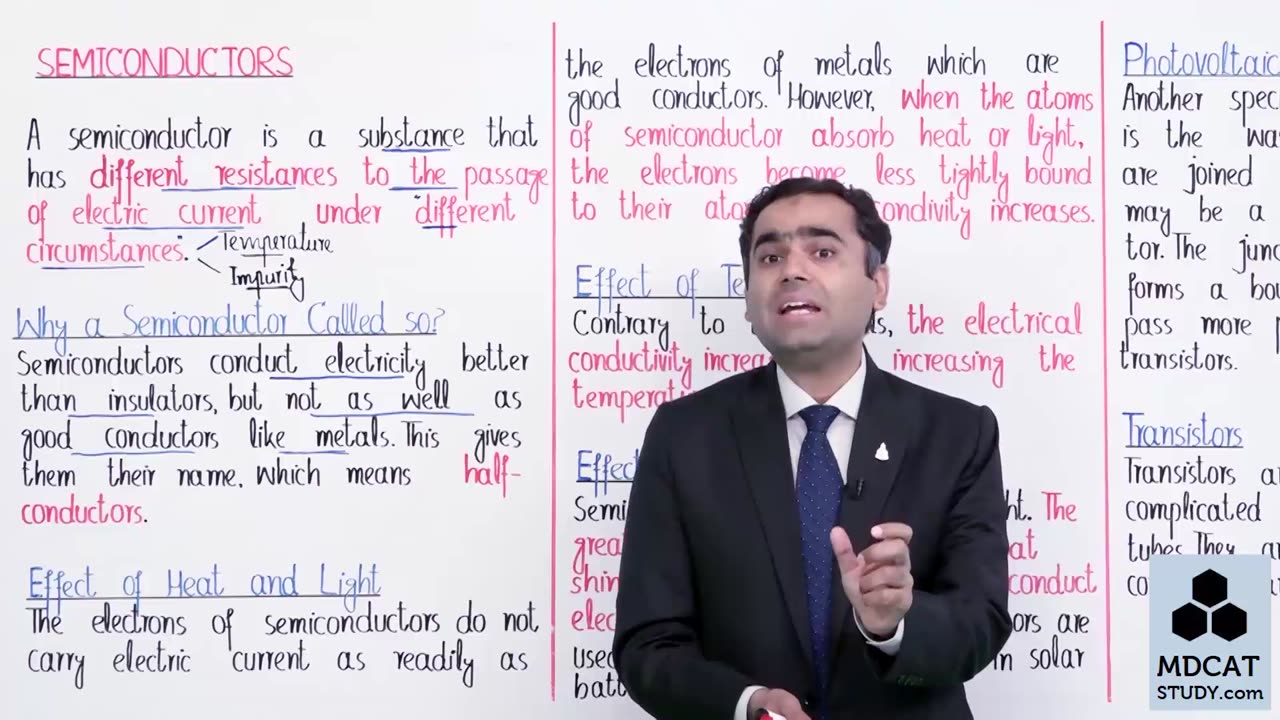 SEMICONDUCTORS
A semiconductor is a substance that
has different resistances to the passage
of electric current under different
circumstances.
Temperature
Impurity
Why a Semiconductor Called so?
Semiconductors conduct electricity better
than insulators, but not as well as
good conductors like metals. This gives
them their name, which means half-
conductors.
Effect of Heat and Light
The electrons of semiconductors do not
carry electric current as readily as
the electrons of metals which are
good conductors. However, when the atoms
of semiconductor absorb heat or light,
the electrons become less tightly bound
to their condivity increases.
Effect of
Contrary to the electrical
conductivity increasing the
The
conduct
are
used in solar
Another
is the
are joined
may be a
tor. The
forms a
pass more
transistors.
Transistors
Transistors
complicated
tubes. They
MDCAT
STUDY.com